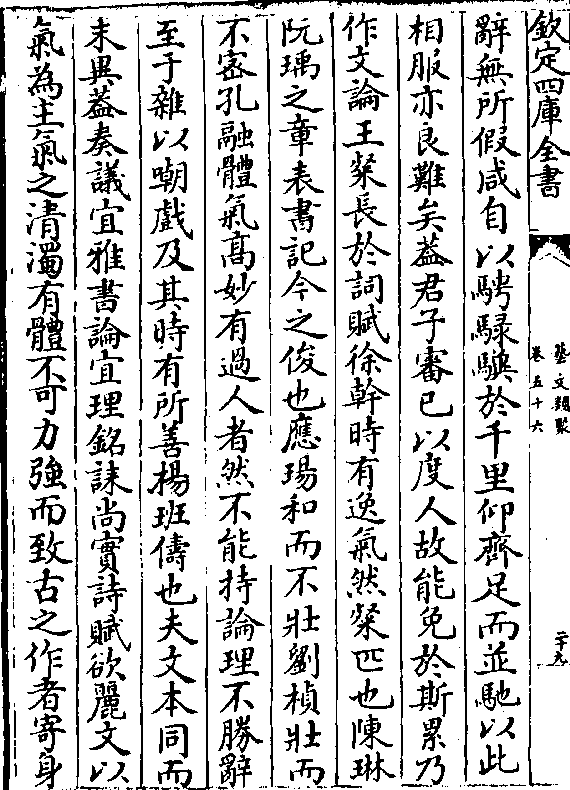 欽定四庫全書
藝文類聚
卷五十六
二十九
辭無所假咸自以騁騄驥於千里仰齊足而並馳以此
相服亦良難矣葢君子審已以度人故能免於斯累乃
作文論王粲長於詞賦徐幹時有逸氣然粲匹也陳琳
阮瑀之章表書記今之俊也應瑒和而不壯劉楨壯而
不宻孔融體氣髙妙有過人者然不能持論理不勝辭
至于雜以嘲戲及其時有所善楊班儔也夫文本同而
末異葢奏議宜雅書論宜理銘誄尚實詩賦欲麗文以
氣為主氣之清濁有體不可力強而致古之作者寄身